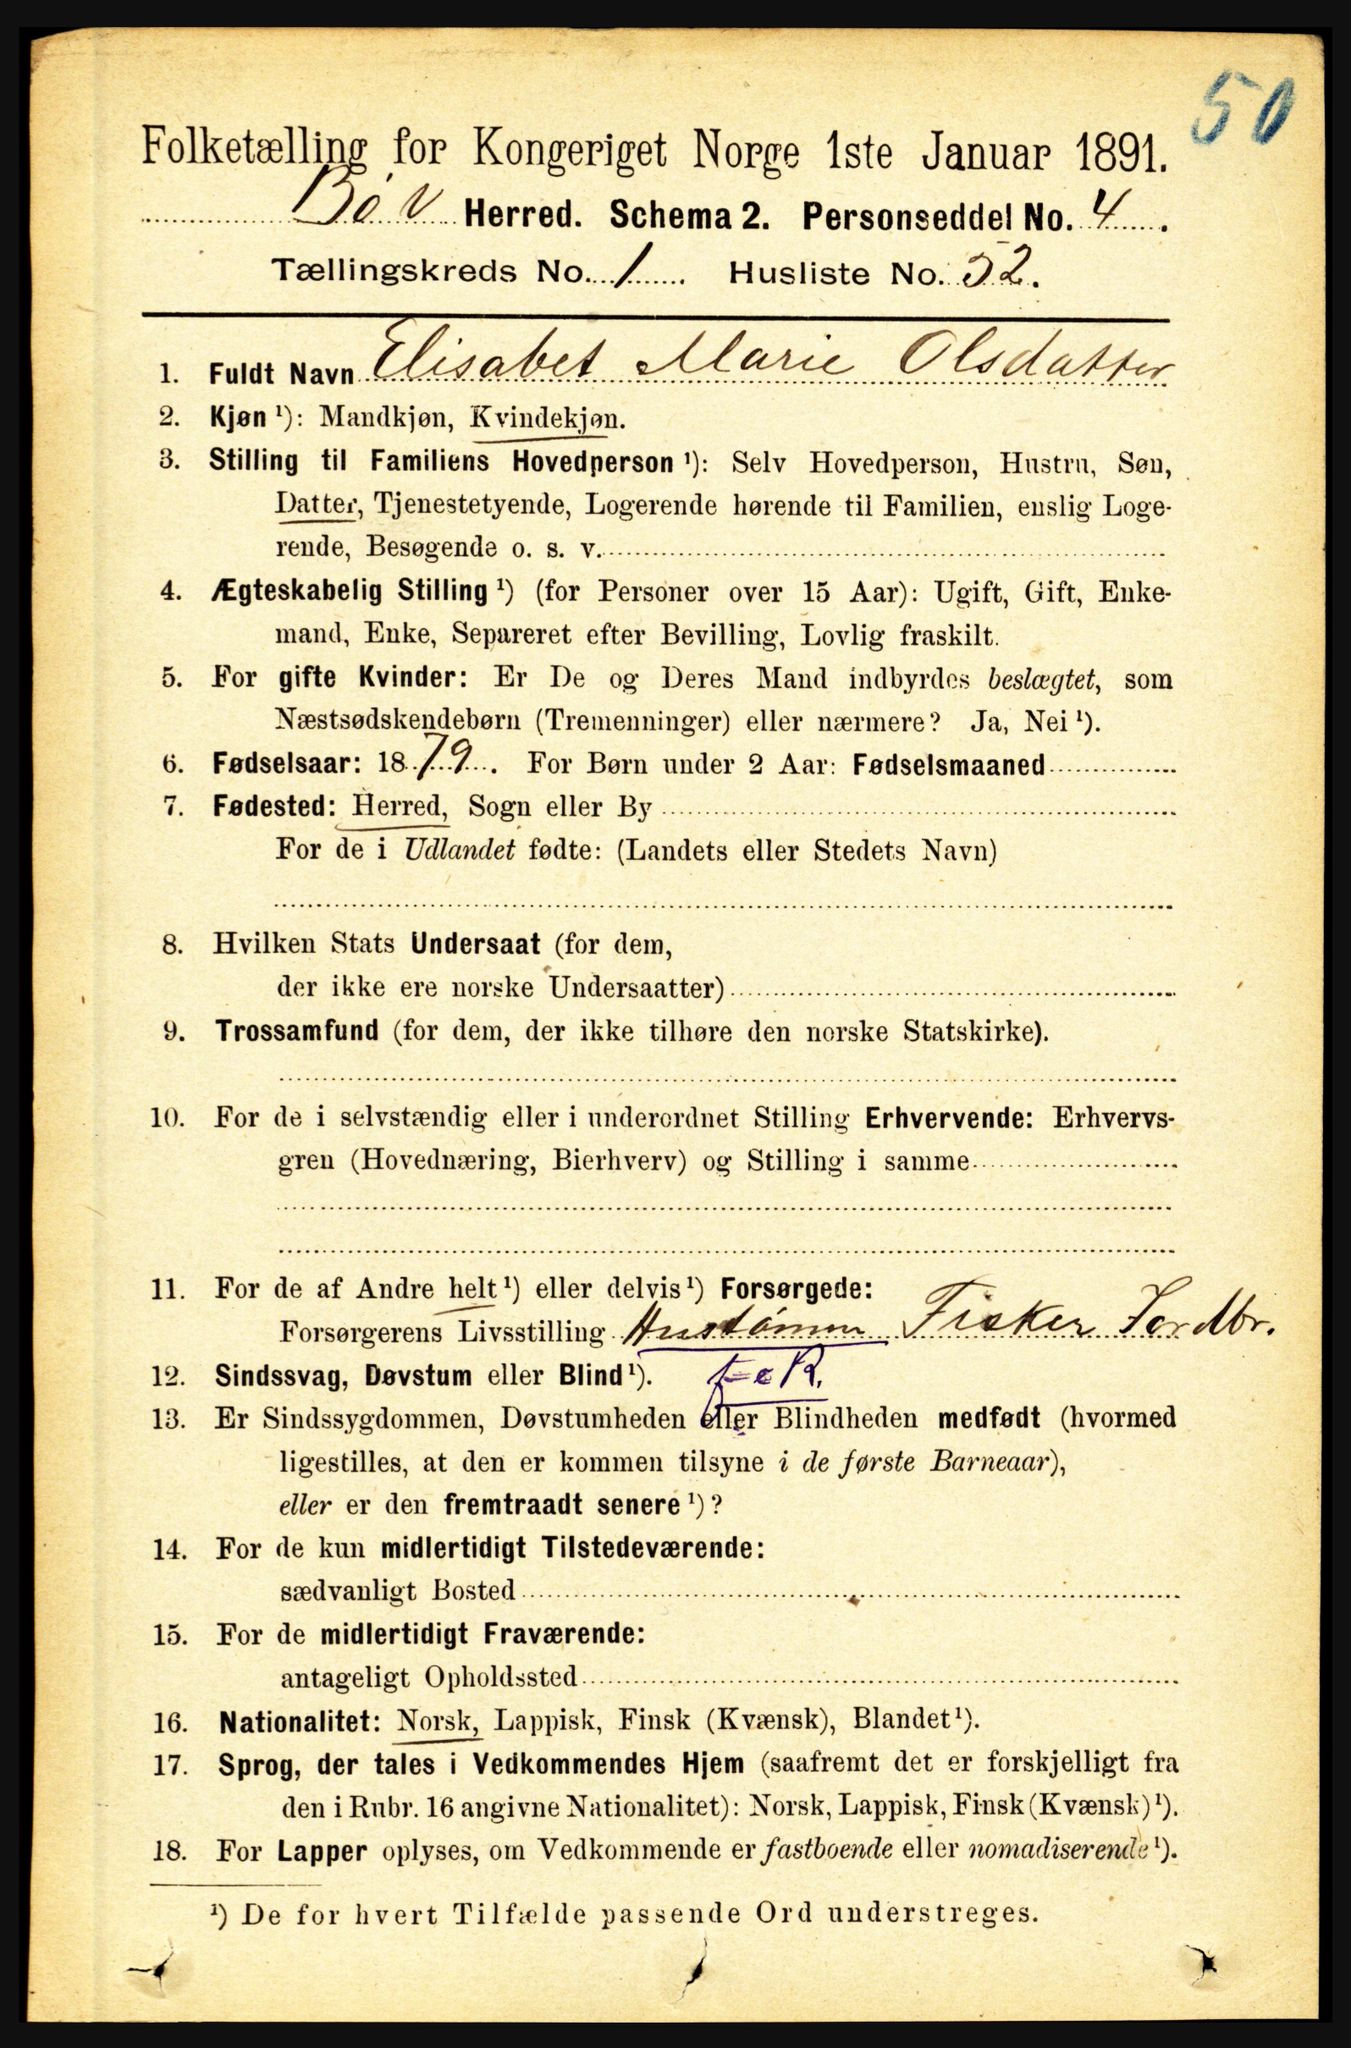 50
Folketælling for Kongeriget Norge 1ste Januar 1891.
Bøv Herred. Schema 2. Personseddel No. 4.
Tællingskreds No. 1. Husliste No. 52.
1. Fuldt Navn Elisabet Marie Olsdatter
2. Kjøn ¹): Mandkjøn, Kvindekjøn.
3. Stilling til Familiens Hovedperson ¹): Selv Hovedperson, Hustru, Søn,
Datter, Tjenestetyende, Logerende hørende til Familien, enslig Loge-
rende, Besøgende o. s. v.
4. Ægteskabelig Stilling ¹) (for Personer over 15 Aar): Ugift, Gift, Enke-
mand, Enke, Separeret efter Bevilling, Lovlig fraskilt.
5. For gifte Kvinder: Er De og Deres Mand indbyrdes beslægtet, som
Næstsødskendebørn (Tremenninger) eller nærmere? Ja, Nei ¹).
6. Fødselsaar: 1879. For Børn under 2 Aar: Fødselsmaaned
7. Fødested: Herred, Sogn eller By
For de i Udlandet fødte: (Landets eller Stedets Navn)
8. Hvilken Stats Undersaat (for dem,
der ikke ere norske Undersaatter)
9. Trossamfund (for dem, der ikke tilhøre den norske Statskirke).
10. For de i selvstændig eller i underordnet Stilling Erhvervende: Erhvervs-
gren (Hovednæring, Bierhverv) og Stilling i samme
11. For de af Andre helt ¹) eller delvis ¹) Forsørgede:
Forsørgerens Livsstilling Fisker
12. Sindssvag, Døvstum eller Blind ¹).
13. Er Sindssygdommen, Døvstumheden eller Blindheden medfødt (hvormed
ligestilles, at den er kommen tilsyne i de første Barneaar),
eller er den fremtraadt senere ¹)?
14. For de kun midlertidigt Tilstedeværende:
sædvanligt Bosted
15. For de midlertidigt Fraværende:
antageligt Opholdssted
16. Nationalitet: Norsk, Lappisk, Finsk (Kvænsk), Blandet ¹).
17. Sprog, der tales i Vedkommendes Hjem (saafremt det er forskjelligt fra
den i Rubr. 16 angivne Nationalitet): Norsk, Lappisk, Finsk (Kvænsk) ¹).
18. For Lapper oplyses, om Vedkommende er fastboende eller nomadiserende ¹).
¹) De for hvert Tilfælde passende Ord understreges.